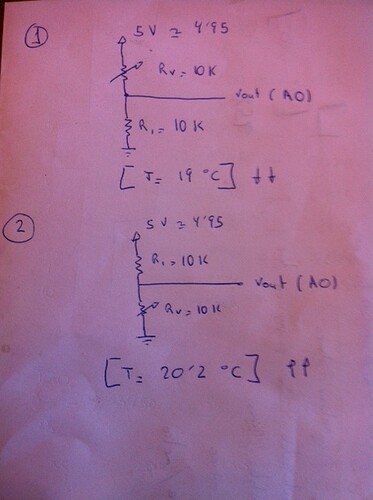 1
5V ≃ 4'95
Rv = 10K
Vout (A0)
R1 = 10K
[T= 19 °C] ↓↓
2
5V ≃ 4'95
R1 = 10K
Vout (A0)
Rv = 10K
[T= 20'2 °C] ↑↑